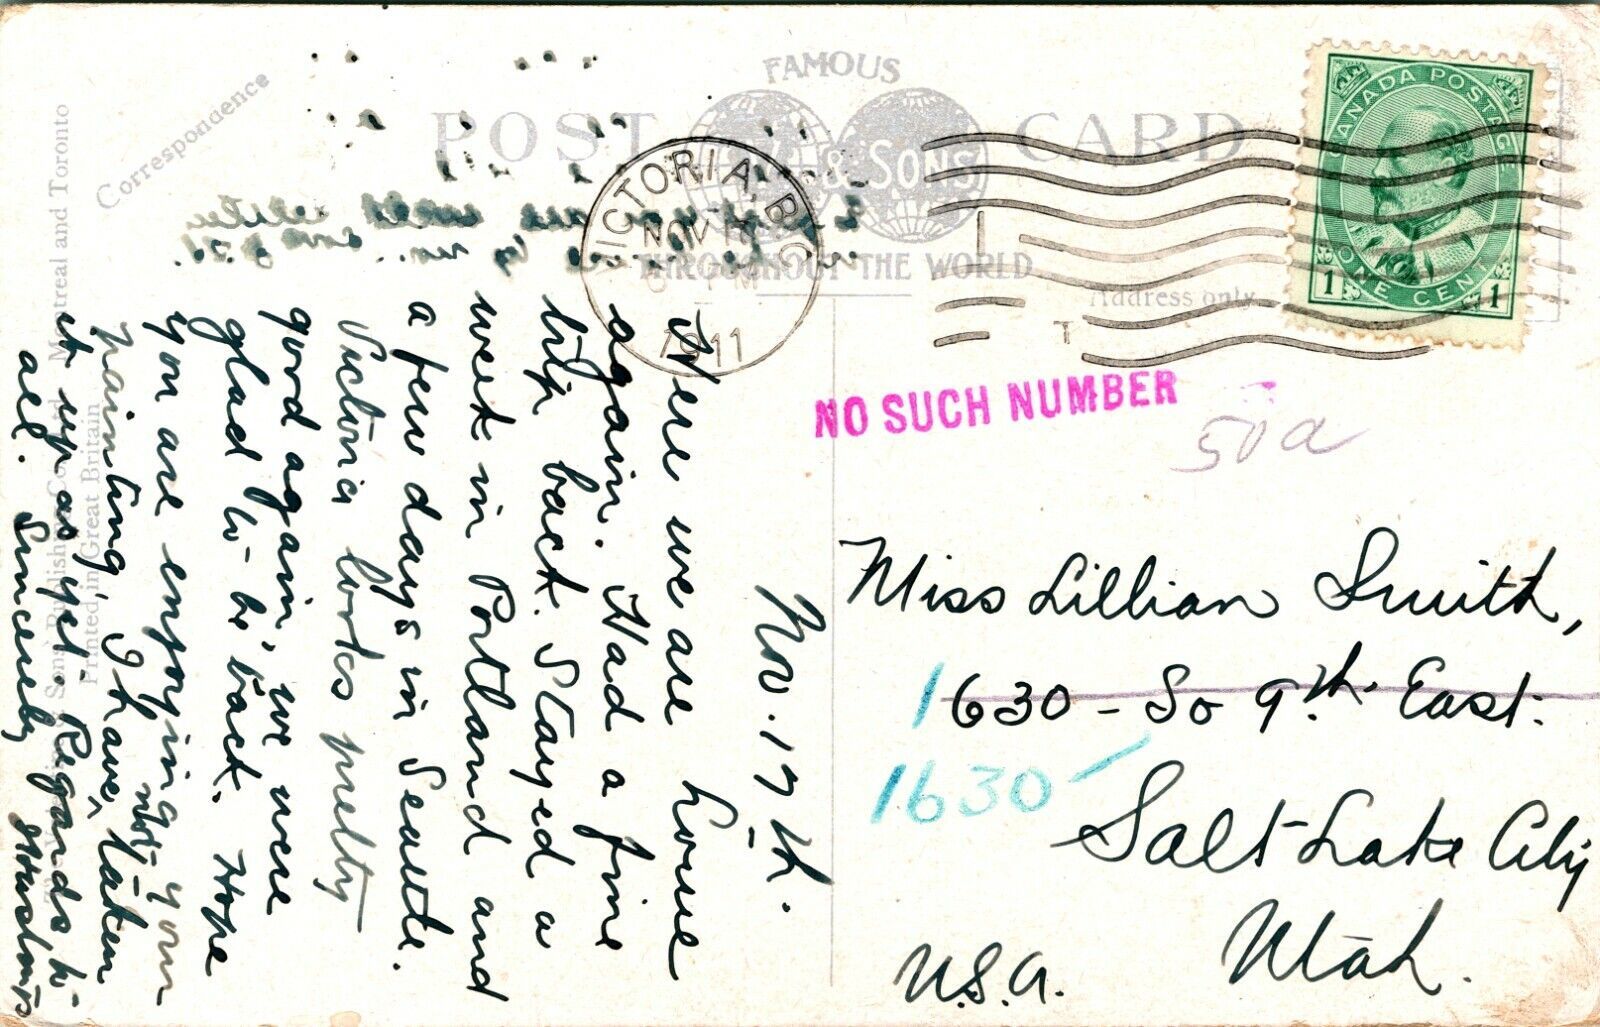 FAMOUS
POST CARD
& SONS
THROUGHOUT THE WORLD
Correspondence
Address only
VICTORIA, B.C.
NOV
PM
1911
CANADA POSTAGE
1 ONE CENT 1
NO SUCH NUMBER
50a
Miss Lillian Smith,
1630 - So 9th East.
1630 -
Salt Lake City
Utah.
U.S.A.
Nov. 17th.
Here we are home
again. Had a fine
trip back. Stayed a
week in Portland and
a few days in Seattle.
Victoria looks pretty
good again, we were
glad to be back. Hope
you are enjoying your
painting, I have not taken
it up as yet. Regards to
all. Sincerely
Montreal and Toronto
Sons' Publishing Co. Ltd.
Printed in Great Britain